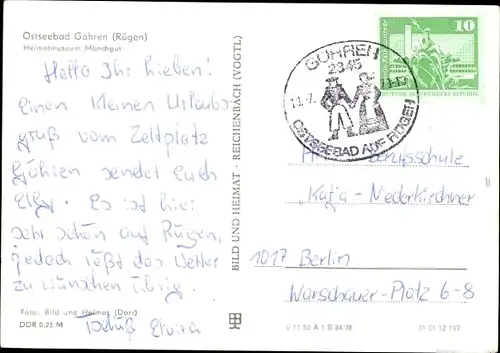 Ostseebad Göhren (Rügen)
Heimatmuseum Mönchgut
Hallo Ihr Lieben!
Einen kleinen Urlaubs-
gruß vom Zeltplatz
Göhren sendet Euch
Elly. Es ist hier
sehr schön auf Rügen,
jedoch läßt das Wetter
zu wünschen übrig.
Tschüß Elvira
Foto: Bild und Heimat (Dari)
DDR 0,25 M
BILD UND HEIMAT · REICHENBACH (VOGTL)
GÖHREN
2345
OSTSEEBAD AUF RÜGEN
10
Berufsschule
"Katja-Niederkirchner
1017 Berlin
Warschauer-Platz 6-8
V 11 50 A 1 B 84/78
01 01 12 197